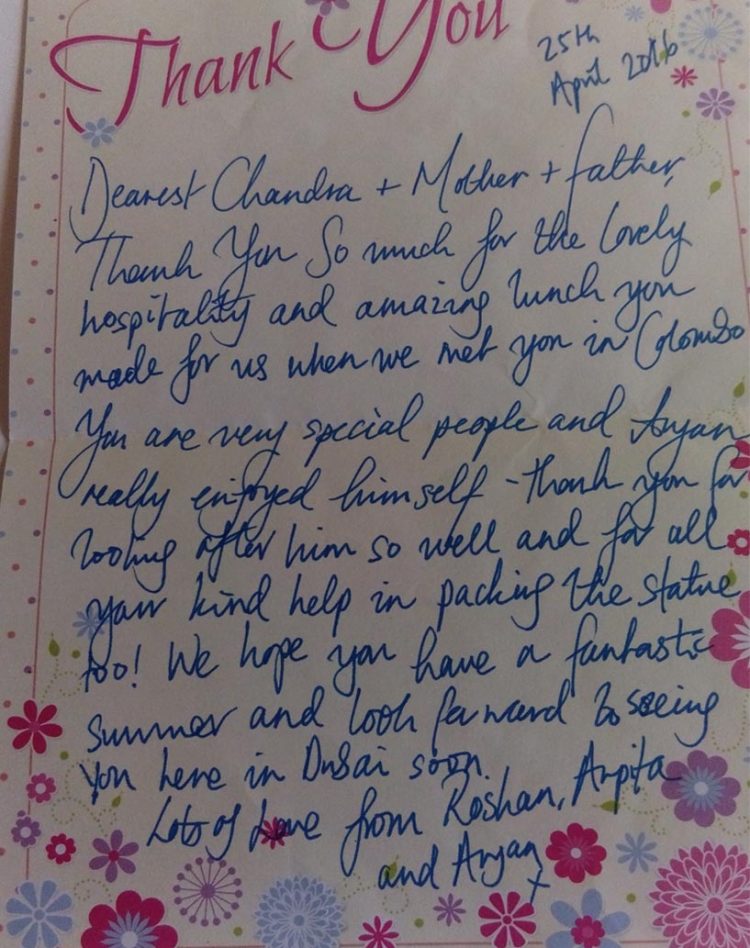 Thank You
25th
April 2016
Dearest Chandra + Mother + father,
Thank You So much for the lovely
hospitality and amazing lunch you
made for us when we met you in Colombo
You are very special people and Aryan
really enjoyed himself - thank you for
looking after him so well and for all
your kind help in packing the statue
too! We hope you have a fantastic
summer and look forward to seeing
You here in Dubai soon.
Lots of Love from Roshan, Arpita
and Aryan
x